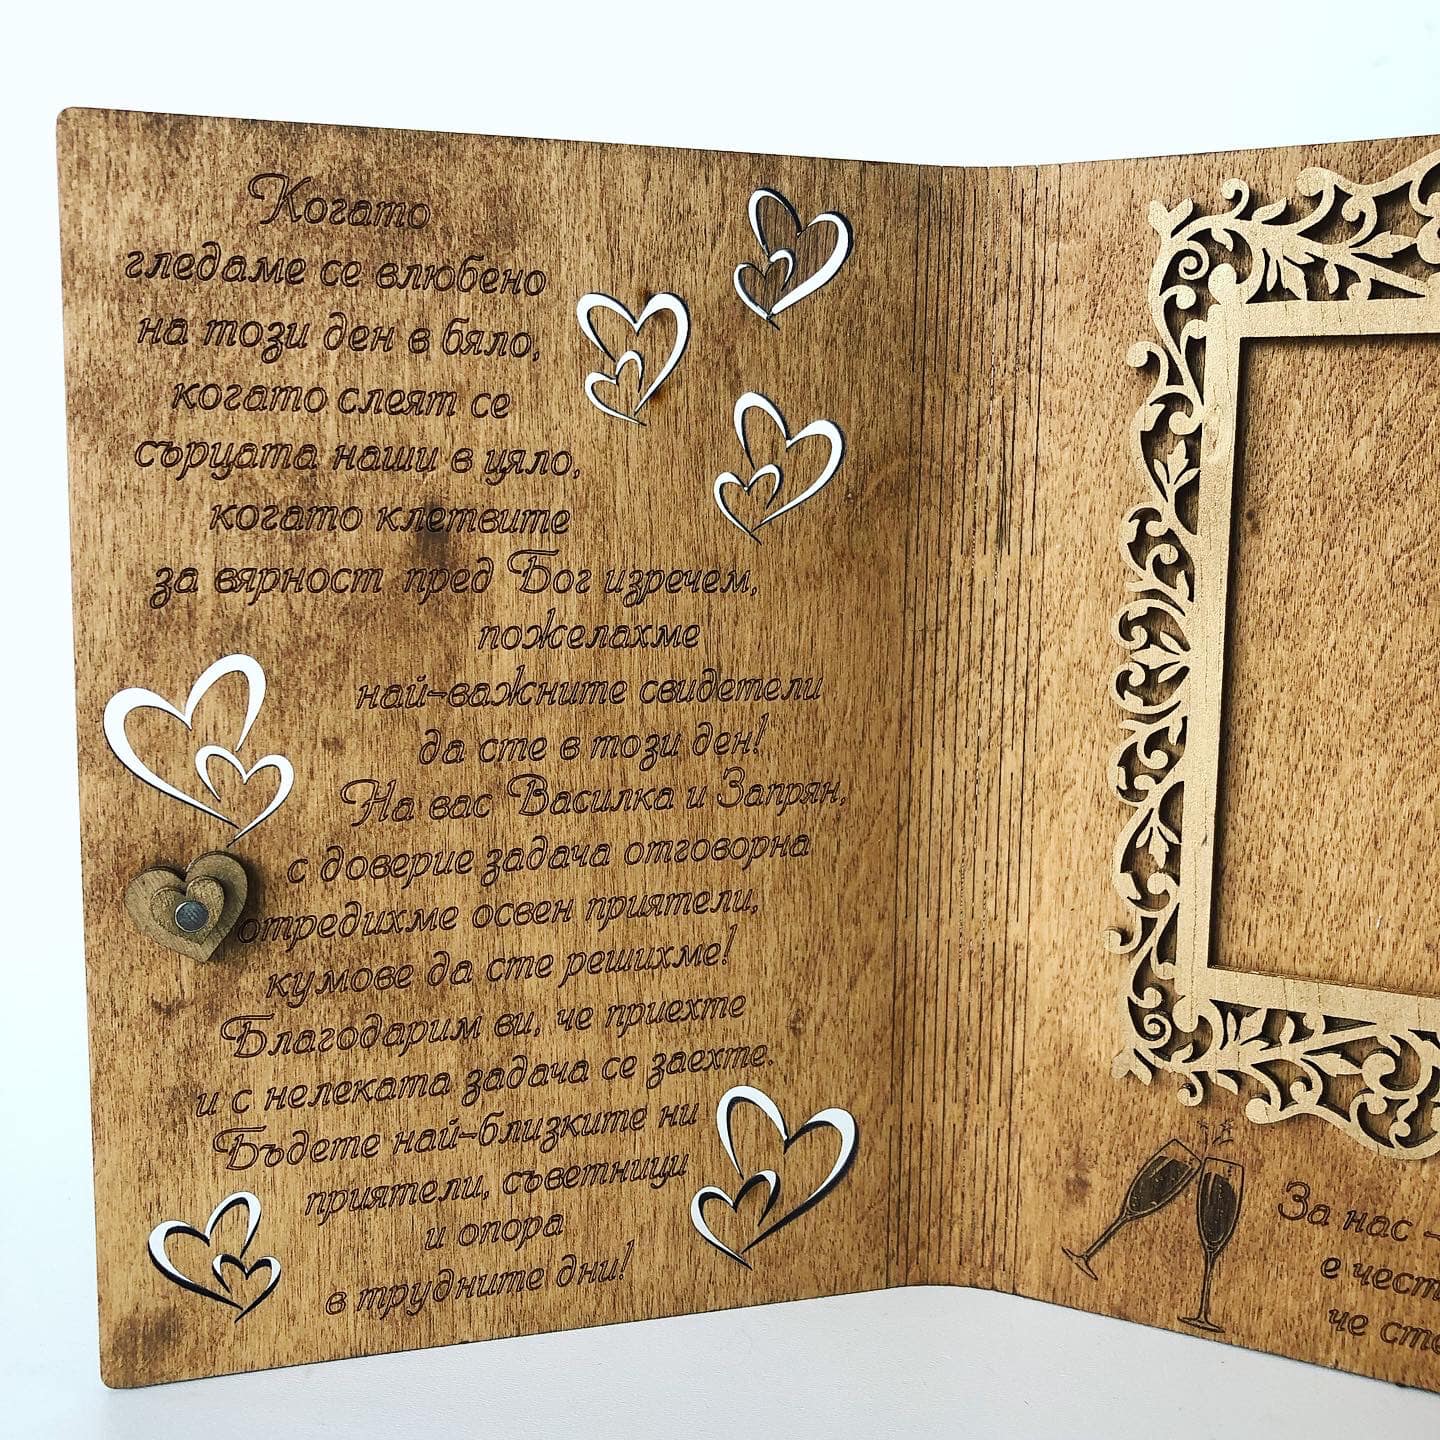 Когато
гледаме се влюбено
на този ден в бяло,
когато слеят се
сърцата наши в цяло,
когато клетвите
за вярност пред Бог изречем,
пожелахме
най-важните свидетели
да сте в този ден!
На вас Василка и Запрян,
с доверие задача отговорна
отредихме освен приятели,
кумове да сте решихме!
Благодарим ви, че приехте
и с нелеката задача се заехте.
Бъдете най-близките ни
приятели, съветници
и опора
в трудните дни!
За нас -
е чест
че сте